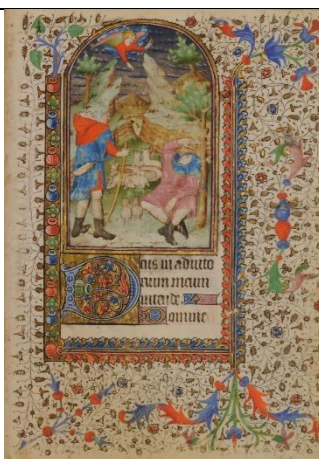 Deus in adiuto
rium meum
intende
Domine